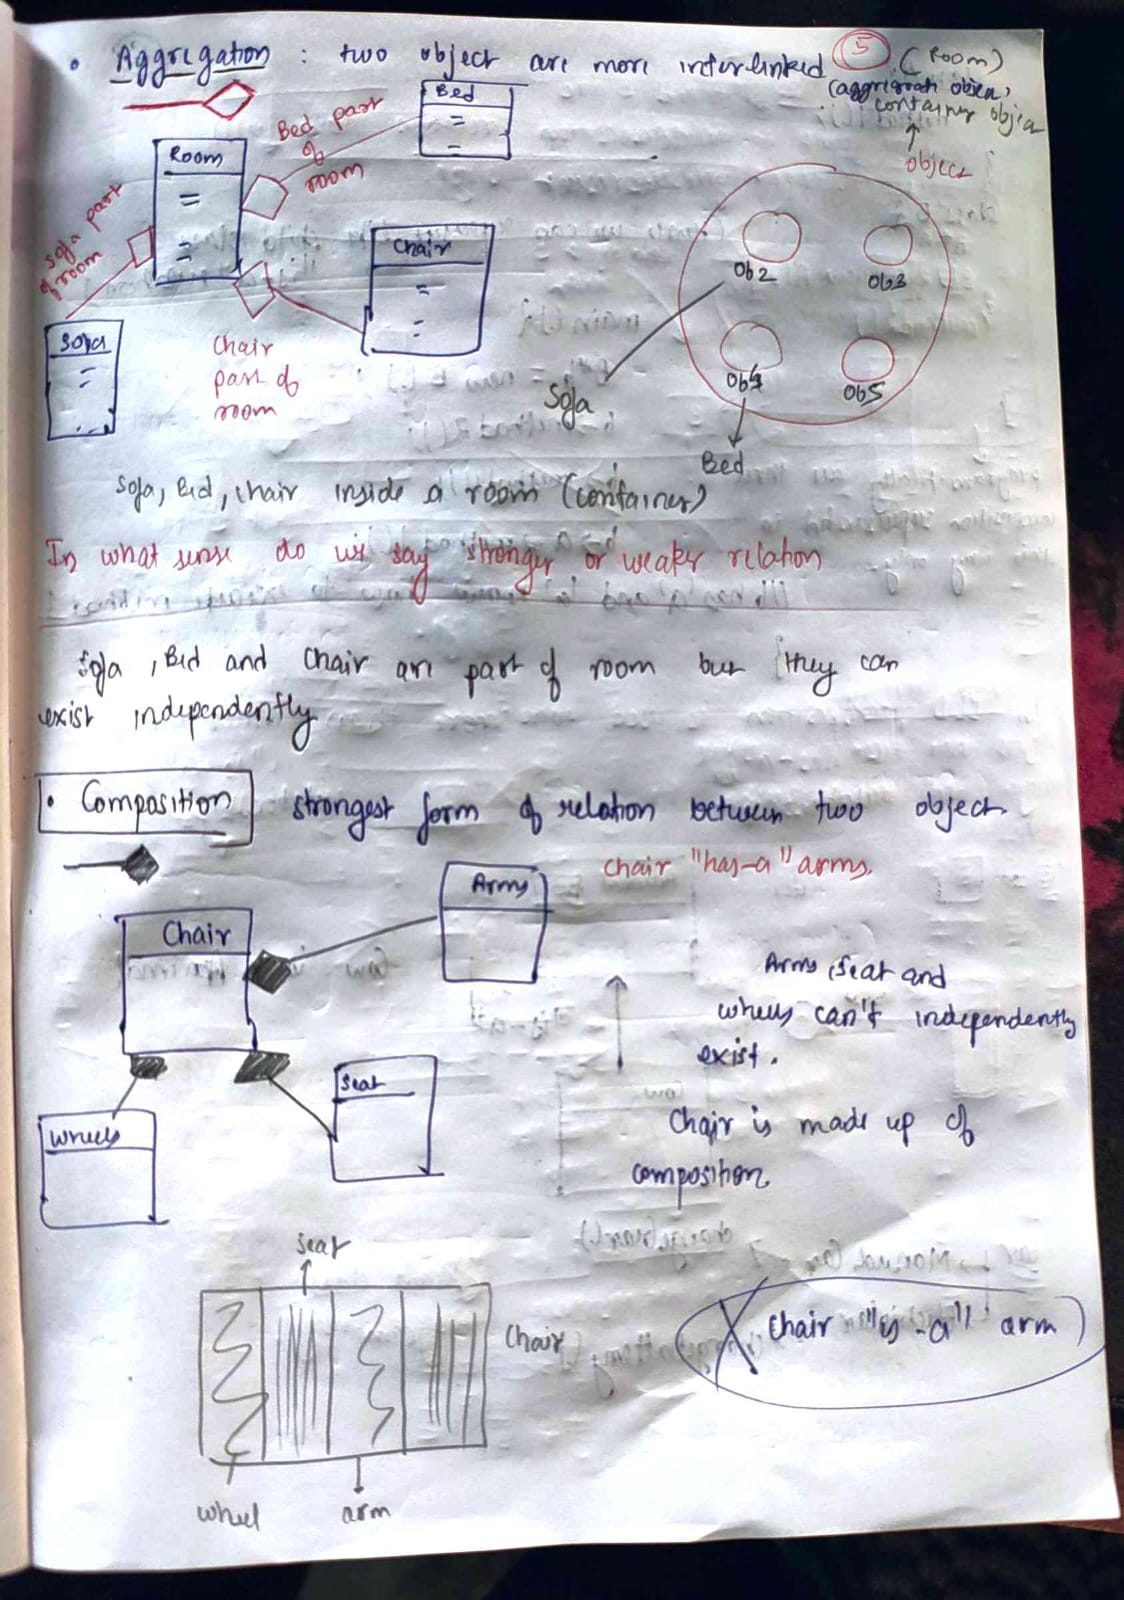 • Aggregation : two object are more interlinked
5
(Room)
(aggregate object,
container object
object
Bed
Bed part
of
room
Room
Sofa part
of room
Chair
Sofa
Chair
part of
room
Ob2
Ob3
Ob4
Ob5
Sofa
Bed
Sofa, Bed, chair inside a room (container)
In what sense do we say stronger or weaker relation
Sofa, Bed and Chair are part of room but they can
exist independently
• Composition strongest form of relation between two object
chair "has-a" arms.
Arms
Chair
Arms, seat and
wheels can't independently
exist.
Seat
Wheels
Chair is made up of
composition.
seat
Chair
X chair "is-a" arm
wheel
arm